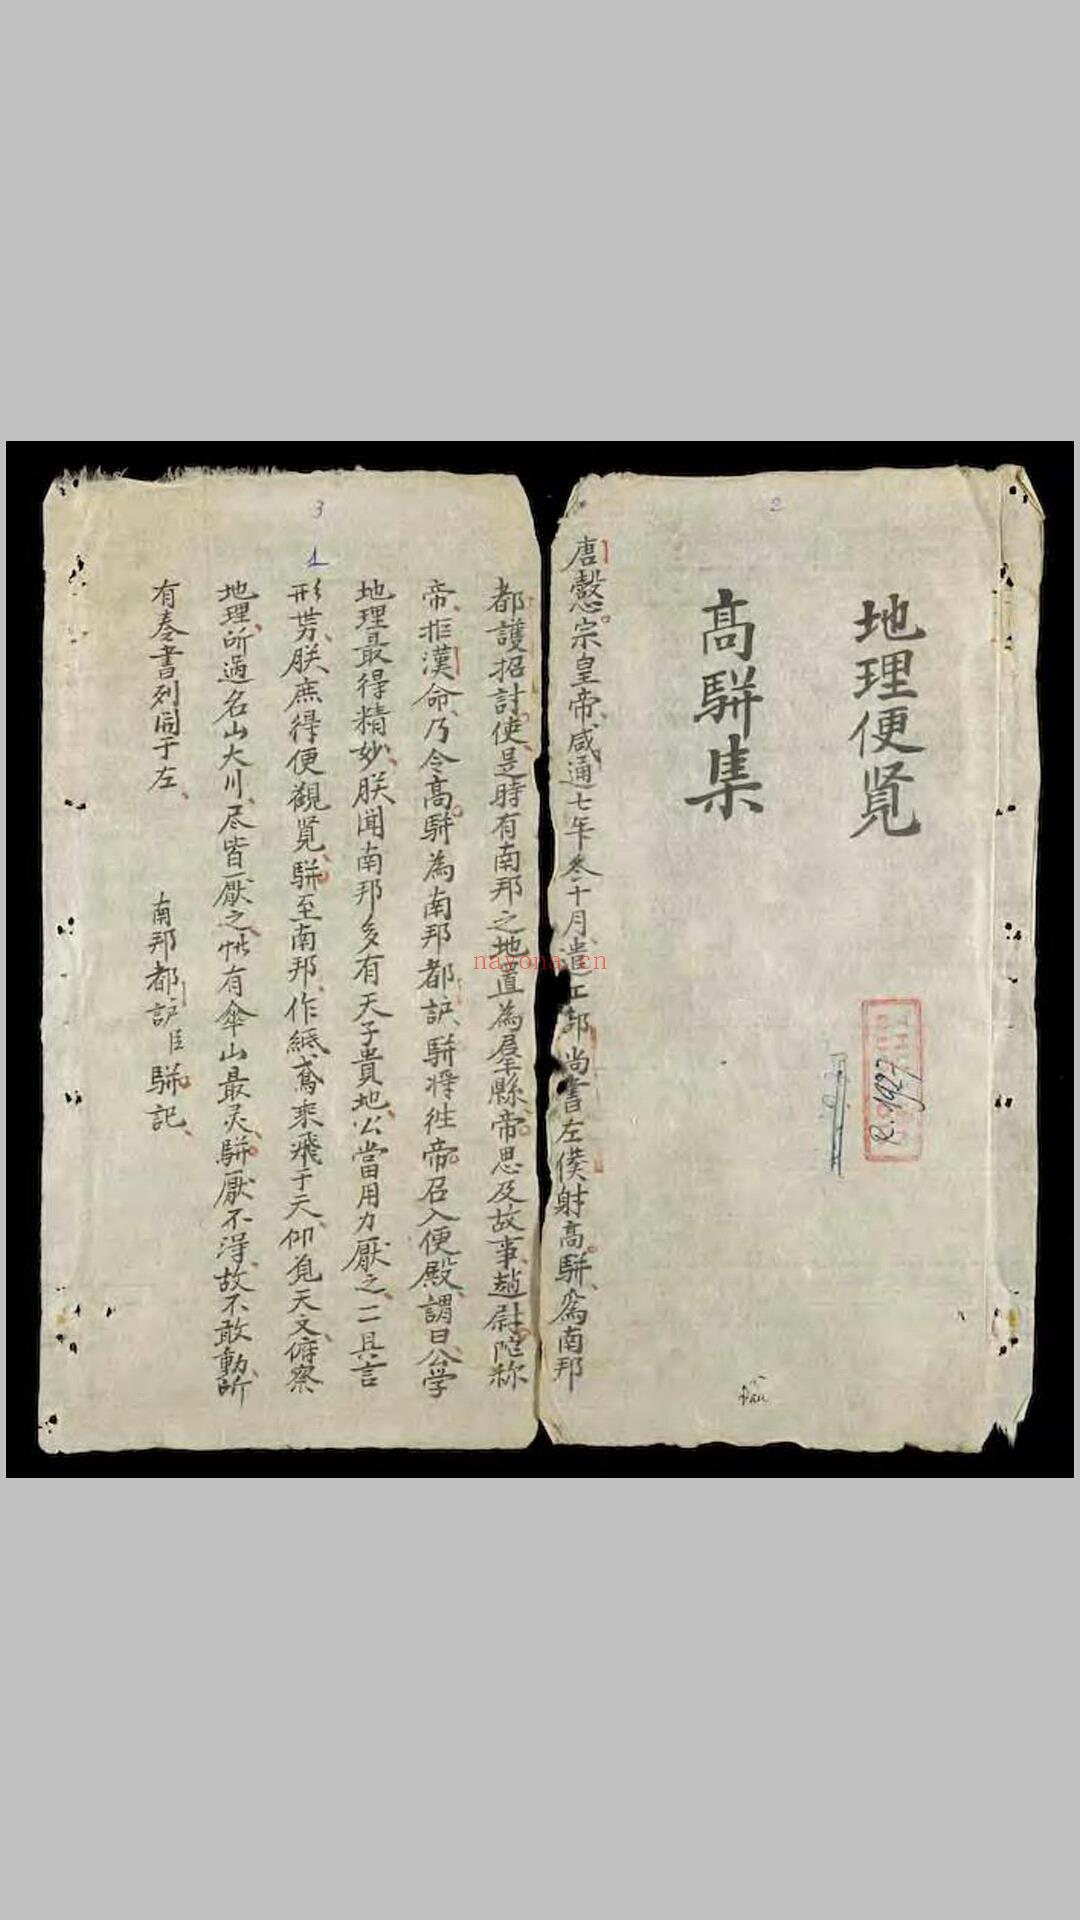 2
地理便覧
高駢集
R.1927
Đầu
唐懿宗皇帝咸通七年冬十月遣工部尚書左僕射高駢為南邦
3
1
都護招討使是時有南邦之地置為羣縣帝思及故事趙尉陀称
帝拒漢命乃令高駢為南邦都護駢将徃帝召入便殿謂曰公学
地理最得精妙朕闻南邦多有天子貴地公當用力厭之一一具言
形势朕庶得便觀覧駢至南邦作紙鳶乘飛于天仰覓天文俯察
地理所過名山大川尽皆厭之惟有傘山最灵駢厭不淂故不敢動所
有奏書列圖于左
南邦都護臣駢記
nayona.cn